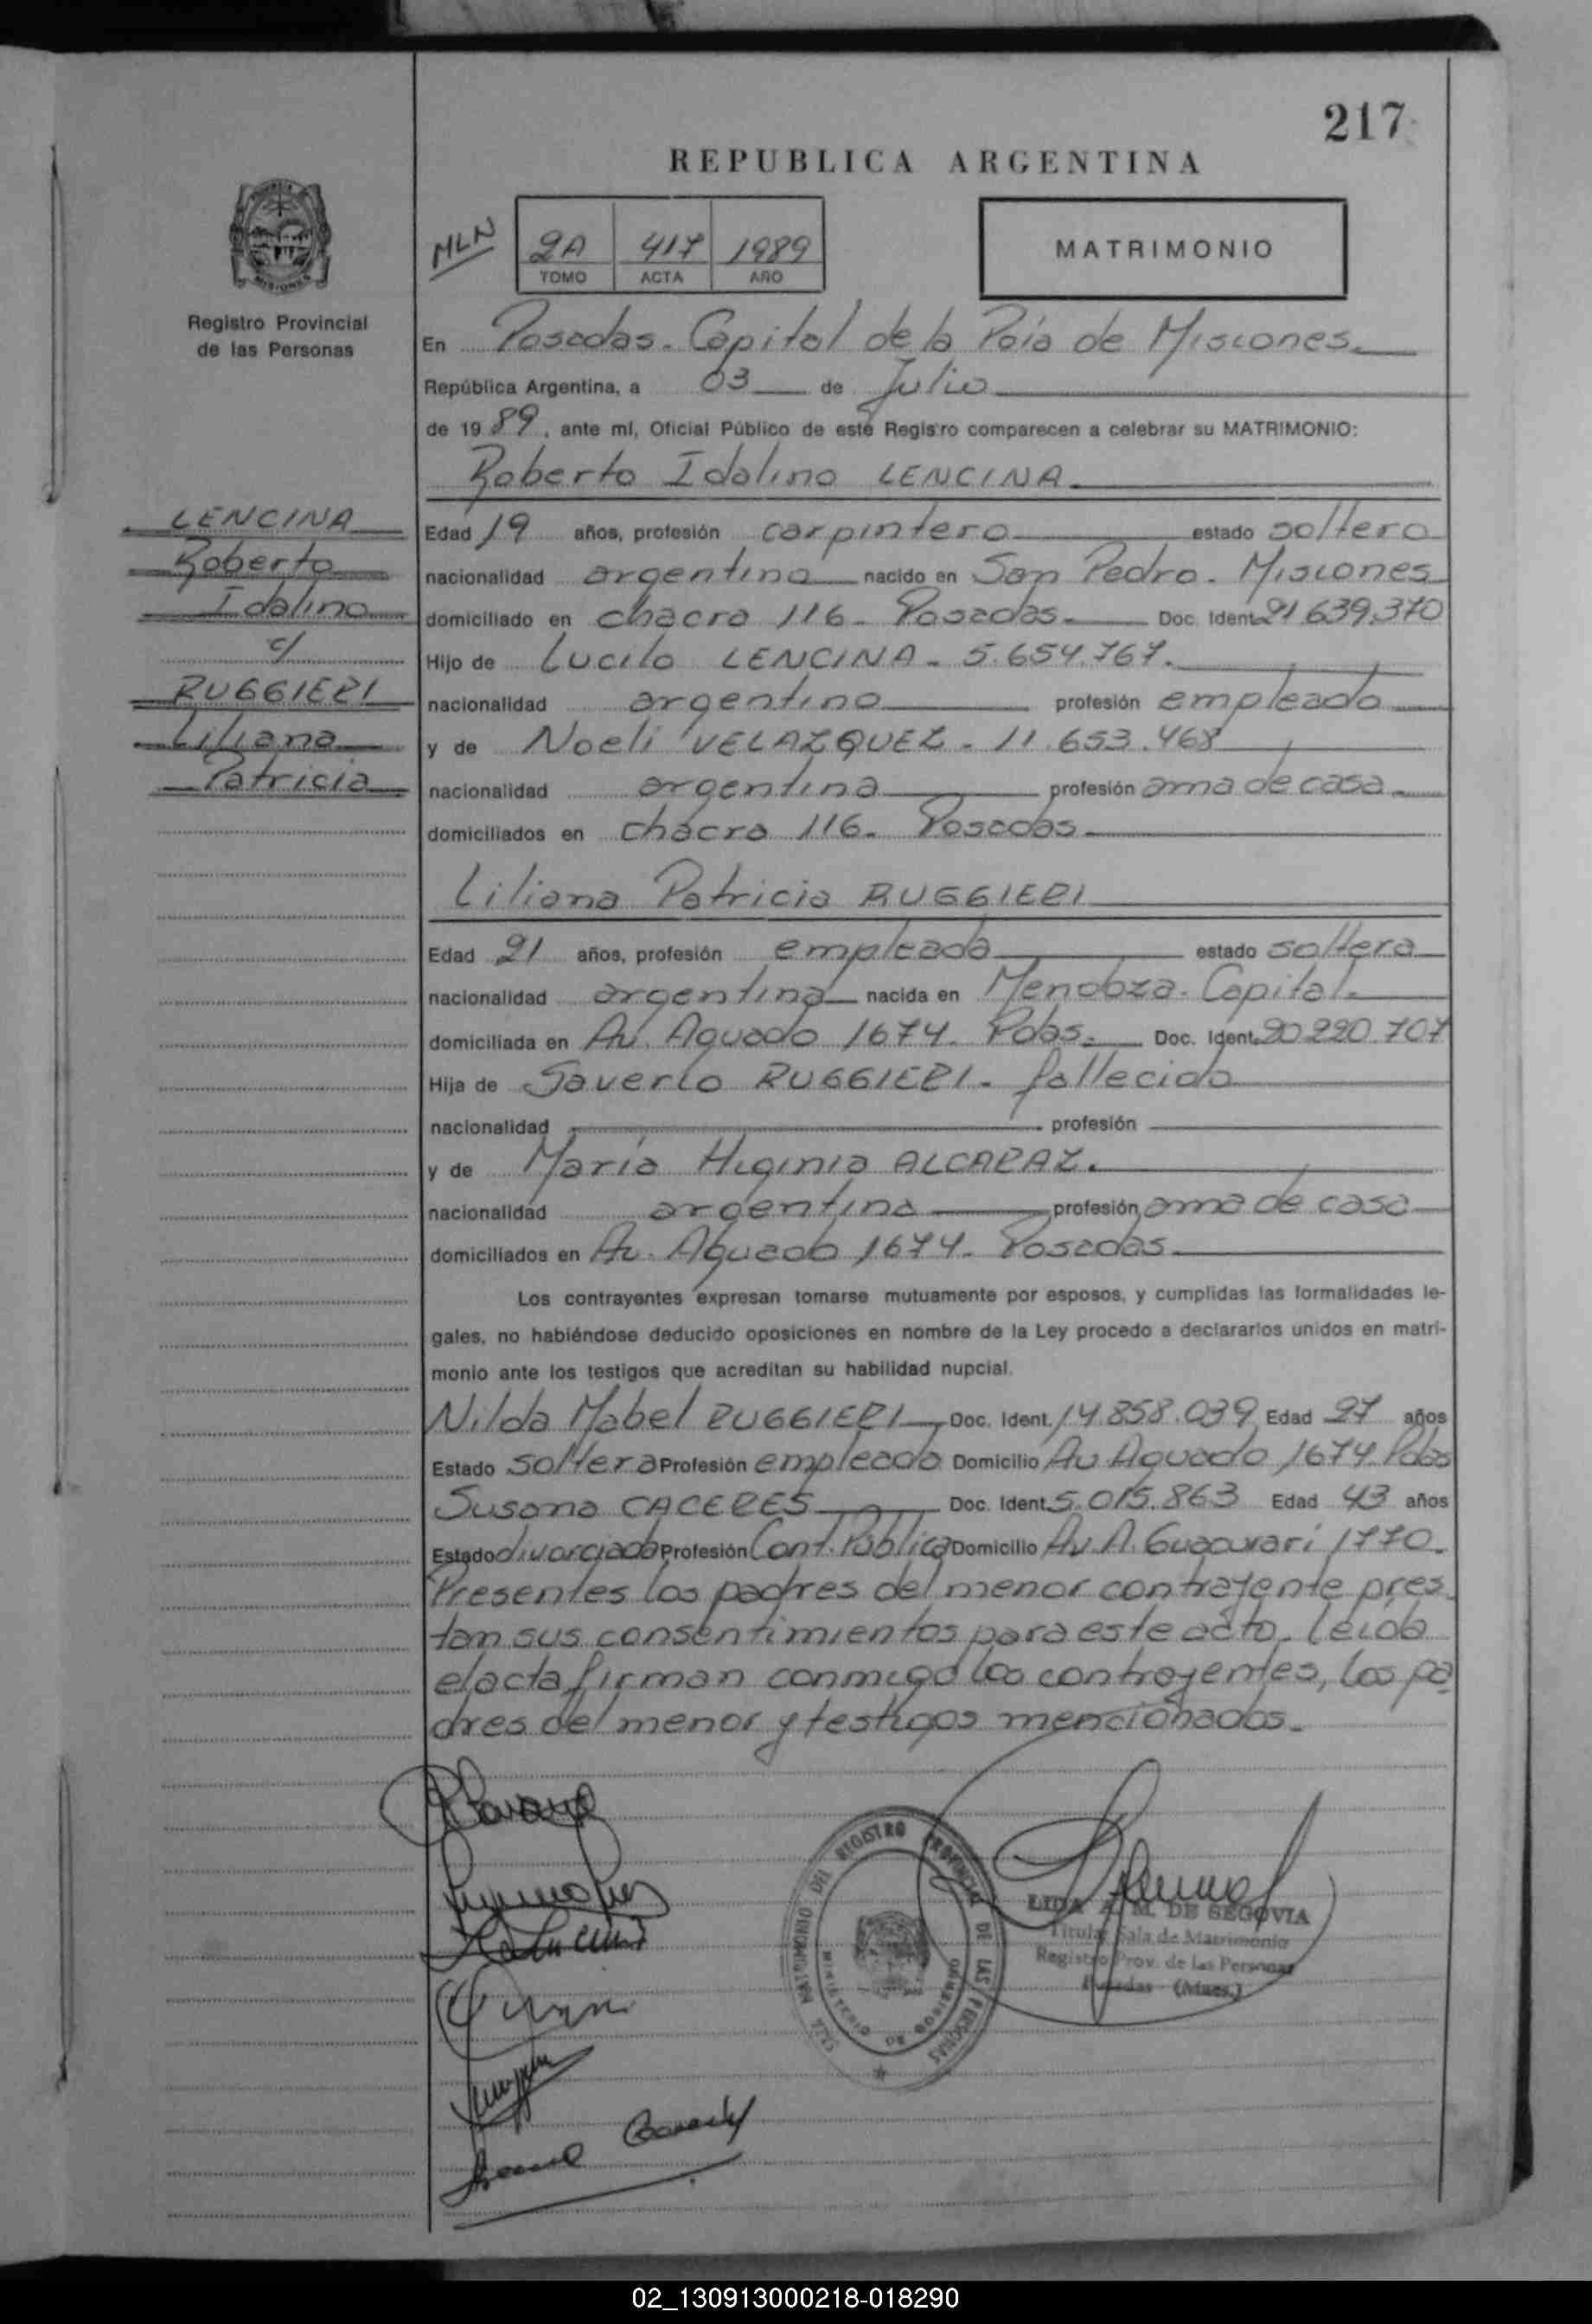 217
REPUBLICA ARGENTINA
MLN
2A 417 1989
TOMO ACTA AÑO
MATRIMONIO
Registro Provincial
de las Personas
En Posadas. Capital de la Pcia de Misiones.
República Argentina, a 03 de Julio
de 1989, ante mí, Oficial Público de este Registro comparecen a celebrar su MATRIMONIO:
Roberto Idalino LENCINA.
LENCINA
Roberto
Idalino
c/
RUGGIERI
Liliana
Patricia
Edad 19 años, profesión carpintero estado soltero
nacionalidad argentina nacido en San Pedro. Misiones
domiciliado en chacra 116. Posadas. Doc. Ident. 21.639.370
Hijo de Lucilo LENCINA. 5.654.767.
nacionalidad argentino profesión empleado
y de Noeli VELAZQUEZ. 11.653.468
nacionalidad argentina profesión ama de casa.
domiciliados en chacra 116. Posadas.
Liliana Patricia RUGGIERI
Edad 21 años, profesión empleada estado soltera
nacionalidad argentina nacida en Mendoza. Capital.
domiciliada en Av. Aguado 1674. Pdas. Doc. Ident. 20.220.707
Hija de Saverio RUGGIERI. fallecido
nacionalidad profesión
y de María Higinia ALCARAZ.
nacionalidad argentina profesión ama de casa
domiciliados en Av. Aguado 1674. Posadas
Los contrayentes expresan tomarse mutuamente por esposos, y cumplidas las formalidades le-
gales, no habiéndose deducido oposiciones en nombre de la Ley procedo a declararlos unidos en matri-
monio ante los testigos que acreditan su habilidad nupcial.
Nilda Mabel RUGGIERI Doc. Ident. 14.858.039 Edad 27 años
Estado soltera Profesión empleada Domicilio Av. Aguado 1674 Pdas
Susana CACERES Doc. Ident. 5.015.863 Edad 43 años
Estado divorciada Profesión Cont. Pública Domicilio Av. A. Guacurarí 1770.
Presentes los padres del menor contrayente pres
tan sus consentimientos para este acto. leida
el acta firman conmigo los contrayentes, los pa
dres del menor y testigos mencionados.
SALA MATRIMONIO DEL REGISTRO PROVINCIAL DE LAS PERSONAS
MINISTERIO DE GOBIERNO
LIDA M. DE SEGOVIA
Titular Sala de Matrimonio
Registro Prov. de las Personas
Posadas (Mnes.)
02_130913000218-018290